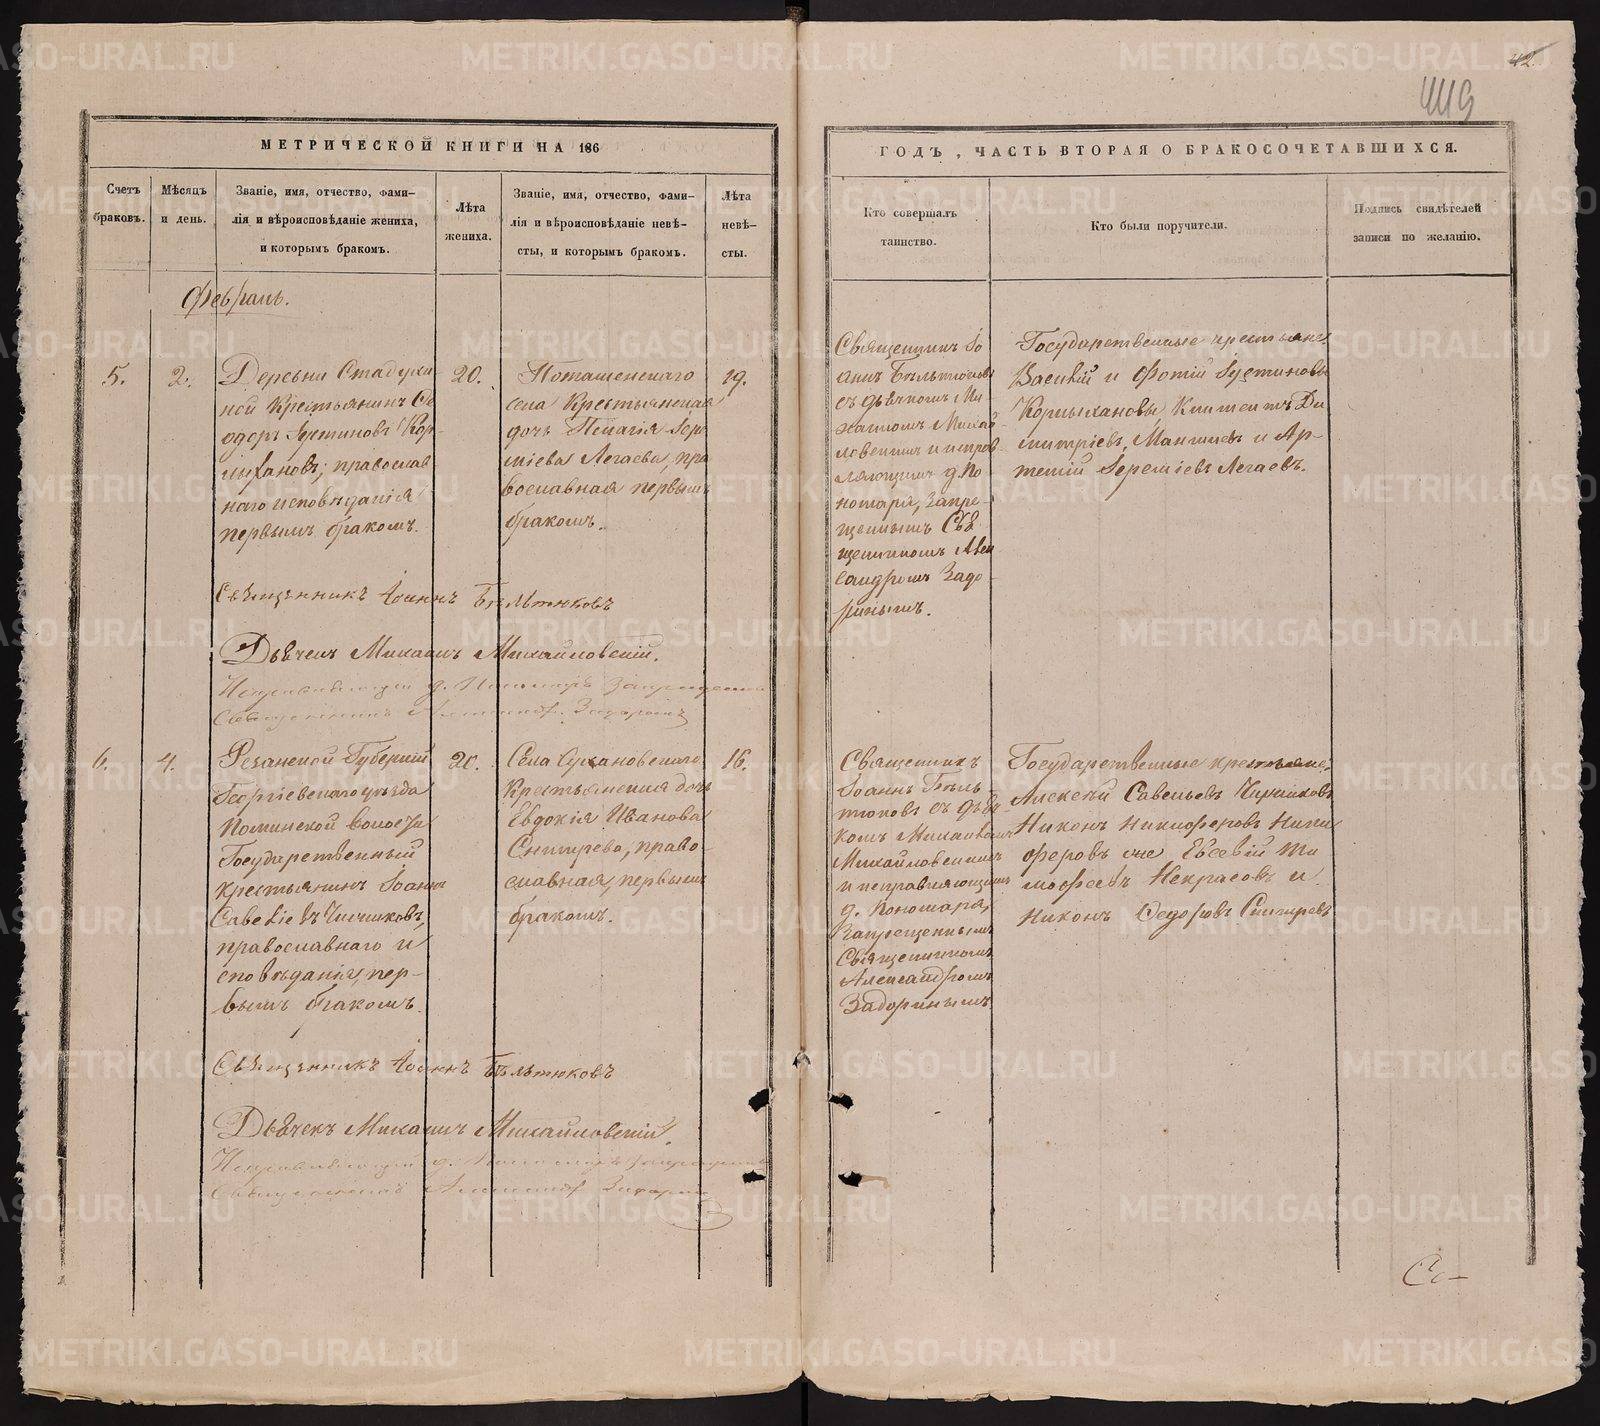 42
419
МЕТРИЧЕСКОЙ КНИГИ НА 186
Счетъ браковъ.
Мѣсяцъ и день.
Званіе, имя, отчество, фами-
лія и вѣроисповѣданіе жениха,
и которымъ бракомъ.
Лѣта жениха.
Званіе, имя, отчество, фами-
лія и вѣроисповѣданіе невѣ-
сты, и которымъ бракомъ.
Лѣта невѣ-
сты.
ГОДЪ, ЧАСТЬ ВТОРАЯ О БРАКОСОЧЕТАВШИХСЯ.
Кто совершалъ
таинство.
Кто были поручители.
Подпись свидѣтелей
записи по желанію.
Февраль.
5.
2.
Деревни Стадухи
ной Крестьянинъ Ѳе
одоръ Іустиновъ Кор
мыхановъ; православ
наго исповѣданія
первымъ бракомъ.
20.
Поташенскаго
села Крестьянская
дочь Пелагія Іере
міева Легаева, пра
вославная первымъ
бракомъ.
19.
Священникъ Іо
аннъ Бѣльтюковъ
съ дьячкомъ Ми-
хаиломъ Михай
ловскимъ и исправ
ляющимъ д. По
номаря, Запре-
щеннымъ Свя
щенникомъ Алек
сандромъ Задо
ринымъ.
Государственные крестьяне
Василій и Фотій Іустиновы
Кормыхановы, Климентъ Ди
митріевъ, Мангилевъ и Ар-
темій Іереміевъ Легаевъ.
Священникъ Іоаннъ Бѣльтюковъ
Дьячекъ Михаилъ Михайловскій.
Исправляющій д. Пономаря Запрещенный
Священникъ Александръ Задоринъ
6.
4.
Резанской Губерніи
Георгіевскаго уѣзда
Государственный
крестьянинъ Іоаннъ
Савеліевъ Чичиковъ,
православнаго и
сповѣданія, пер-
вымъ бракомъ.
20.
Села Сухановскаго
Крестьянская дочь
Евдокія Иванова
Снигирева, право-
славная, первымъ
бракомъ.
16.
Священникъ
Іоаннъ Бѣль
тюковъ съ дьяч
комъ Михаиломъ
Михайловскимъ
и исправляющимъ
д. Пономаря,
Запрещеннымъ
Священникомъ
Александромъ
Задоринымъ
Государственные крестьяне:
Алексѣй Савельевъ
Никонъ Никифоровъ Ники
форовъ же Евсевій Ти
мофеевъ Некрасовъ и
Никонъ Ѳедоровъ Снигиревъ
Священникъ Іоаннъ Бѣльтюковъ
Дьячекъ Михаилъ Михайловскій.
Исправляющій д. Пономаря Запрещенный
Священникъ Александръ Задоринъ
Со-
METRIKI.GASO-URAL.RU